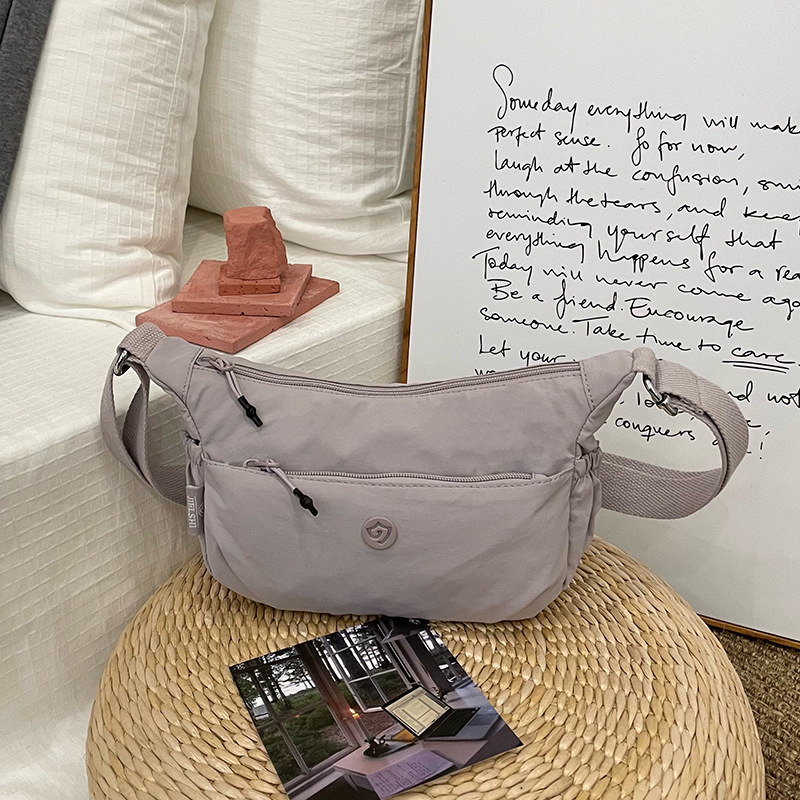 Someday everything will make
perfect sense. So for now,
laugh at the confusion, smi
through the tears, and keep
reminding yourself that
everything happens for a rea
Today will never come aga
Be a friend. Encourage
someone. Take time to care
Let your
and not
love
conquers
!
JIELSHI